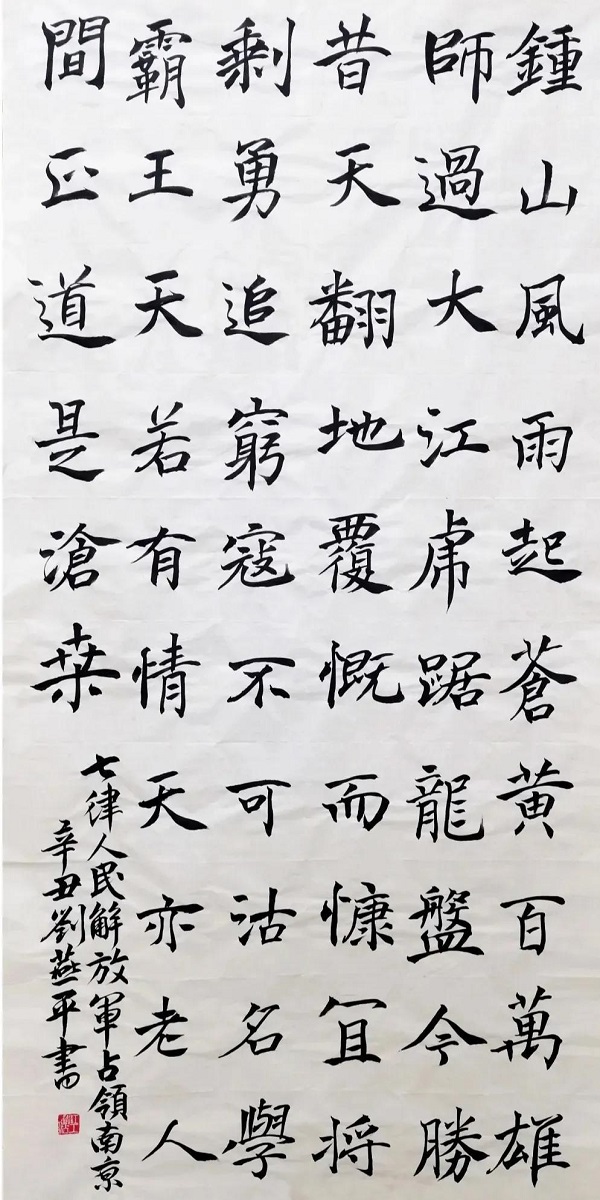 鍾山風雨起蒼黄百萬雄
師過大江虎踞龍盤今勝
昔天翻地覆慨而慷宜將
剩勇追窮寇不可沽名學
霸王天若有情天亦老人
間正道是滄桑
七律人民解放軍占領南京
辛丑劉燕平書